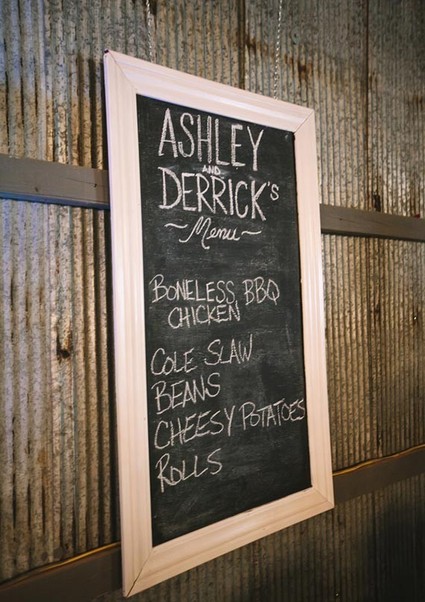 ASHLEY
AND
DERRICK'S
~Menu~
BONELESS BBQ
CHICKEN
COLE SLAW
BEANS
CHEESY POTATOES
ROLLS